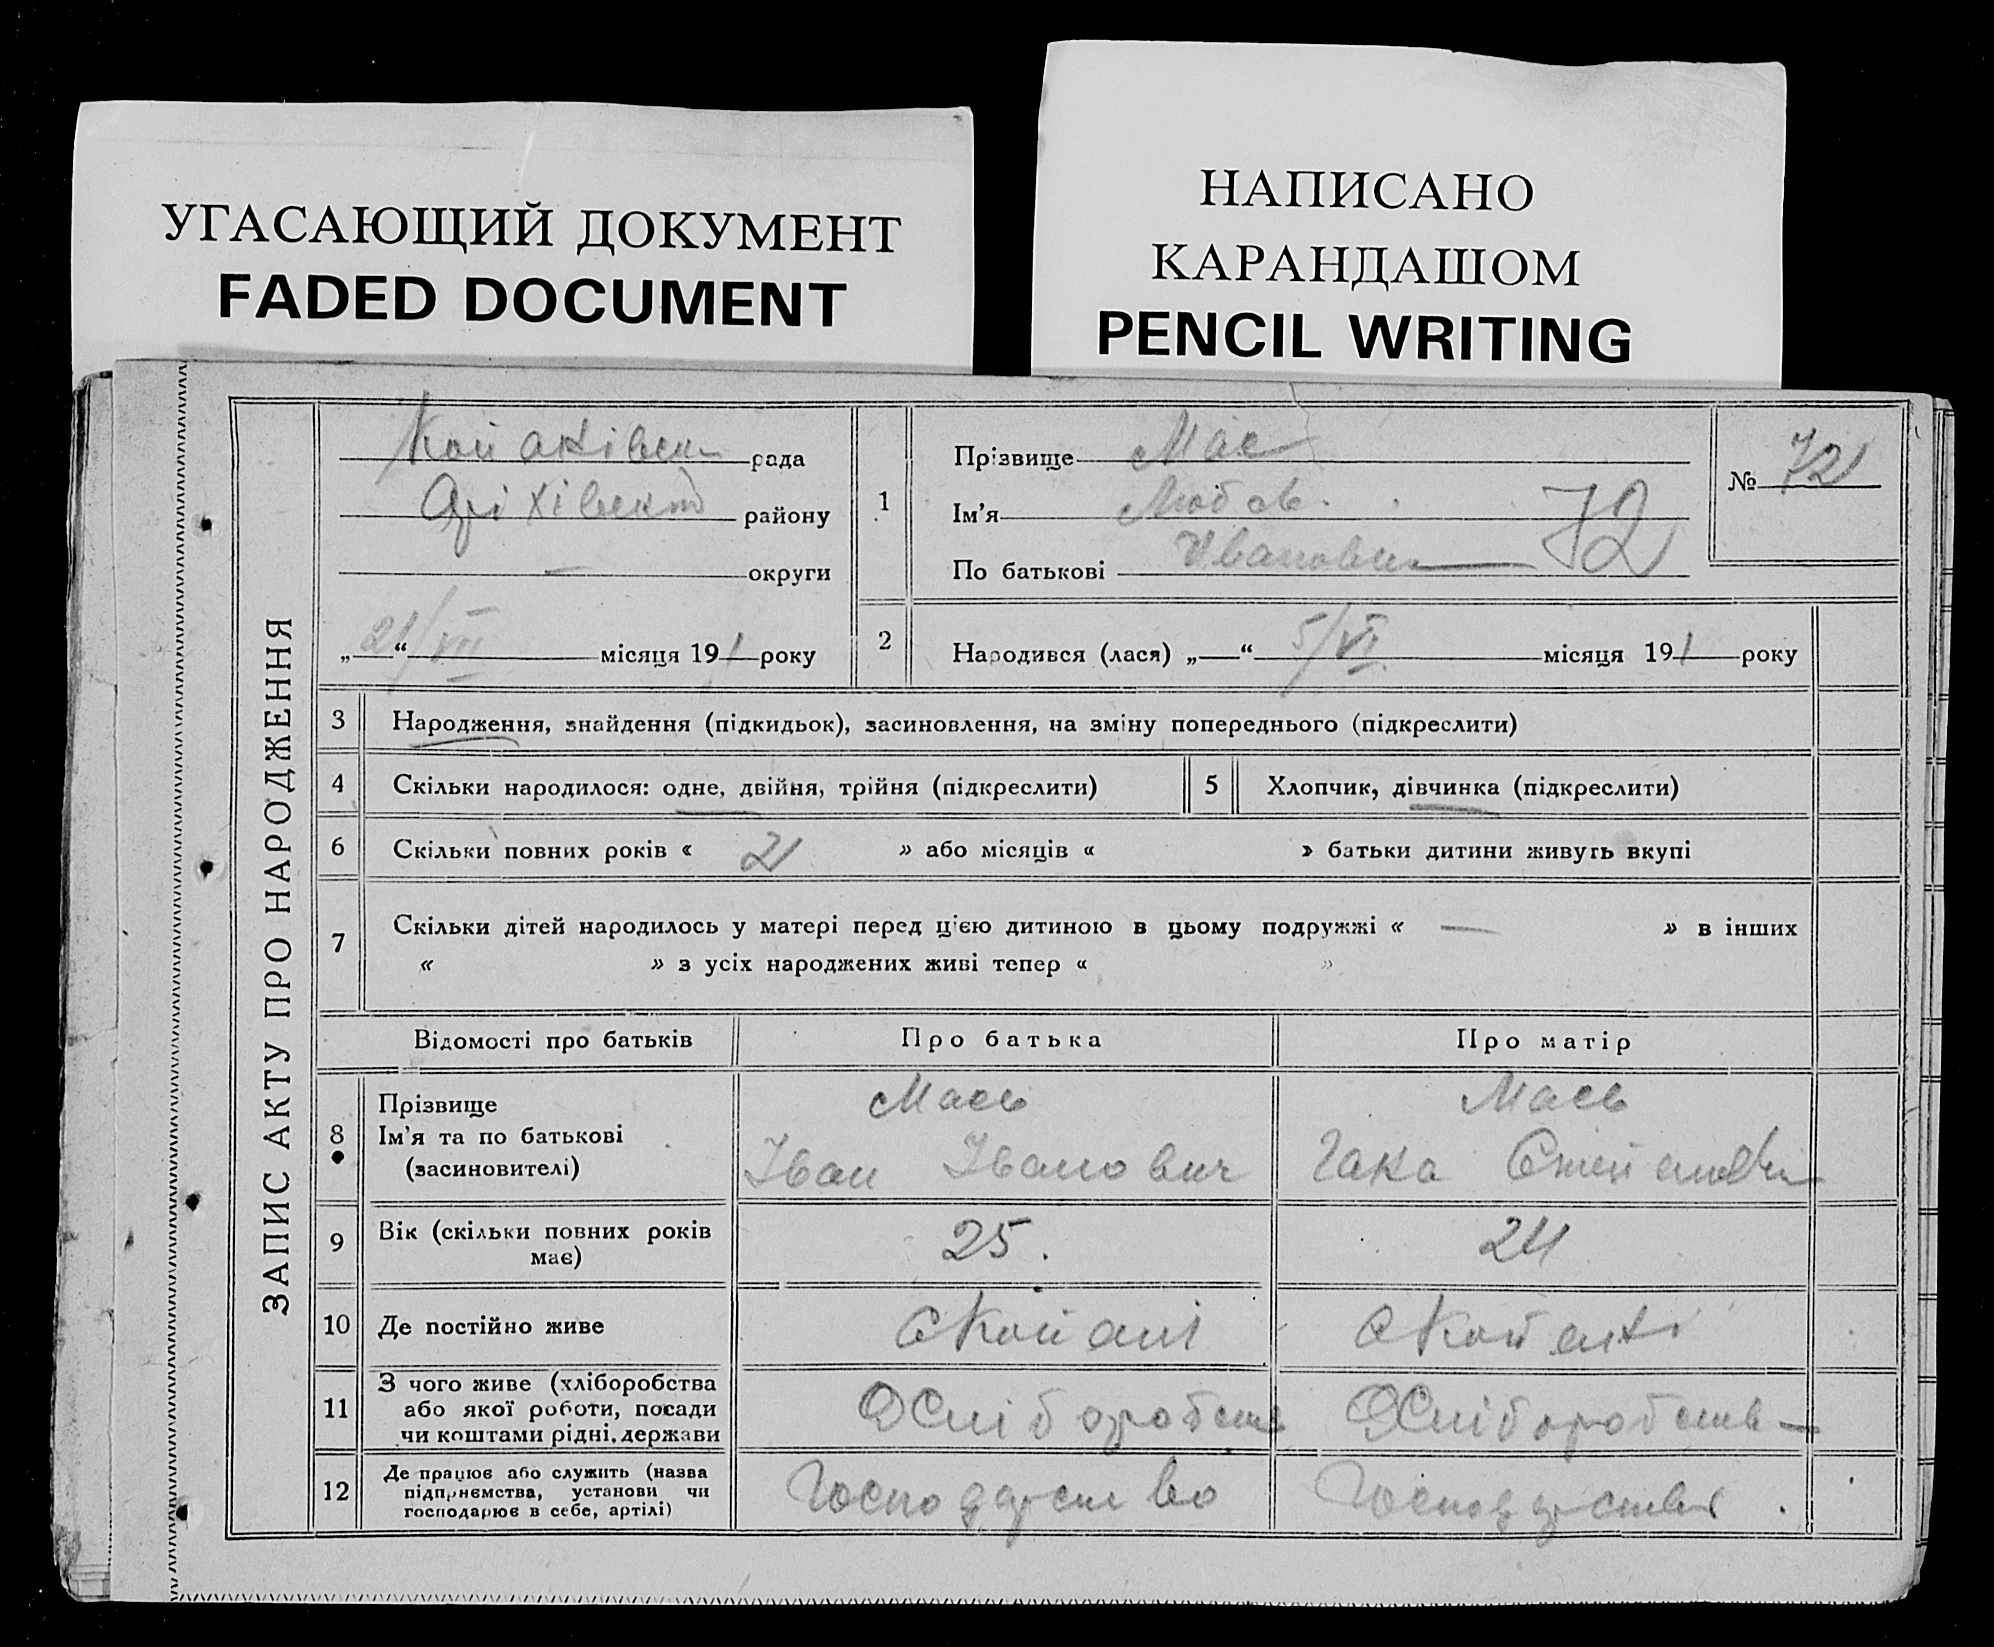 УГАСАЮЩИЙ ДОКУМЕНТ
FADED DOCUMENT
НАПИСАНО
КАРАНДАШОМ
PENCIL WRITING
ЗАПИС АКТУ ПРО НАРОДЖЕННЯ
рада
району
— округи
„21/VII“ місяця 191 року
1
Прізвище Мас
Ім’я Любов
По батькові Ивановна
72
№ 72
2 Народився (лася) „ “ 5/VI місяця 191 року
3 Народження, знайдення (підкидьок), засиновлення, на зміну попереднього (підкреслити)
4 Скільки народилося: одне, двійня, трійня (підкреслити)
5 Хлопчик, дівчинка (підкреслити)
6 Скільки повних років « 2 » або місяців « » батьки дитини живуть вкупі
7 Скільки дітей народилось у матері перед цією дитиною в цьому подружжі « — » в інших
« » з усіх народжених живі тепер « »
Відомості про батьків Про батька Про матір
8 Прізвище
Ім’я та по батькові
(засиновителі)
Мась
Іван Іванович
Мась
9 Вік (скільки повних років
має)
25.
24
10 Де постійно живе
11 З чого живе (хліборобства
або якої роботи, посади
чи коштами рідні, держави
Хліборобств
Хліборобств
12 Де працює або служить (назва
підприємства, установи чи
господарює в себе, артілі)
Господарство